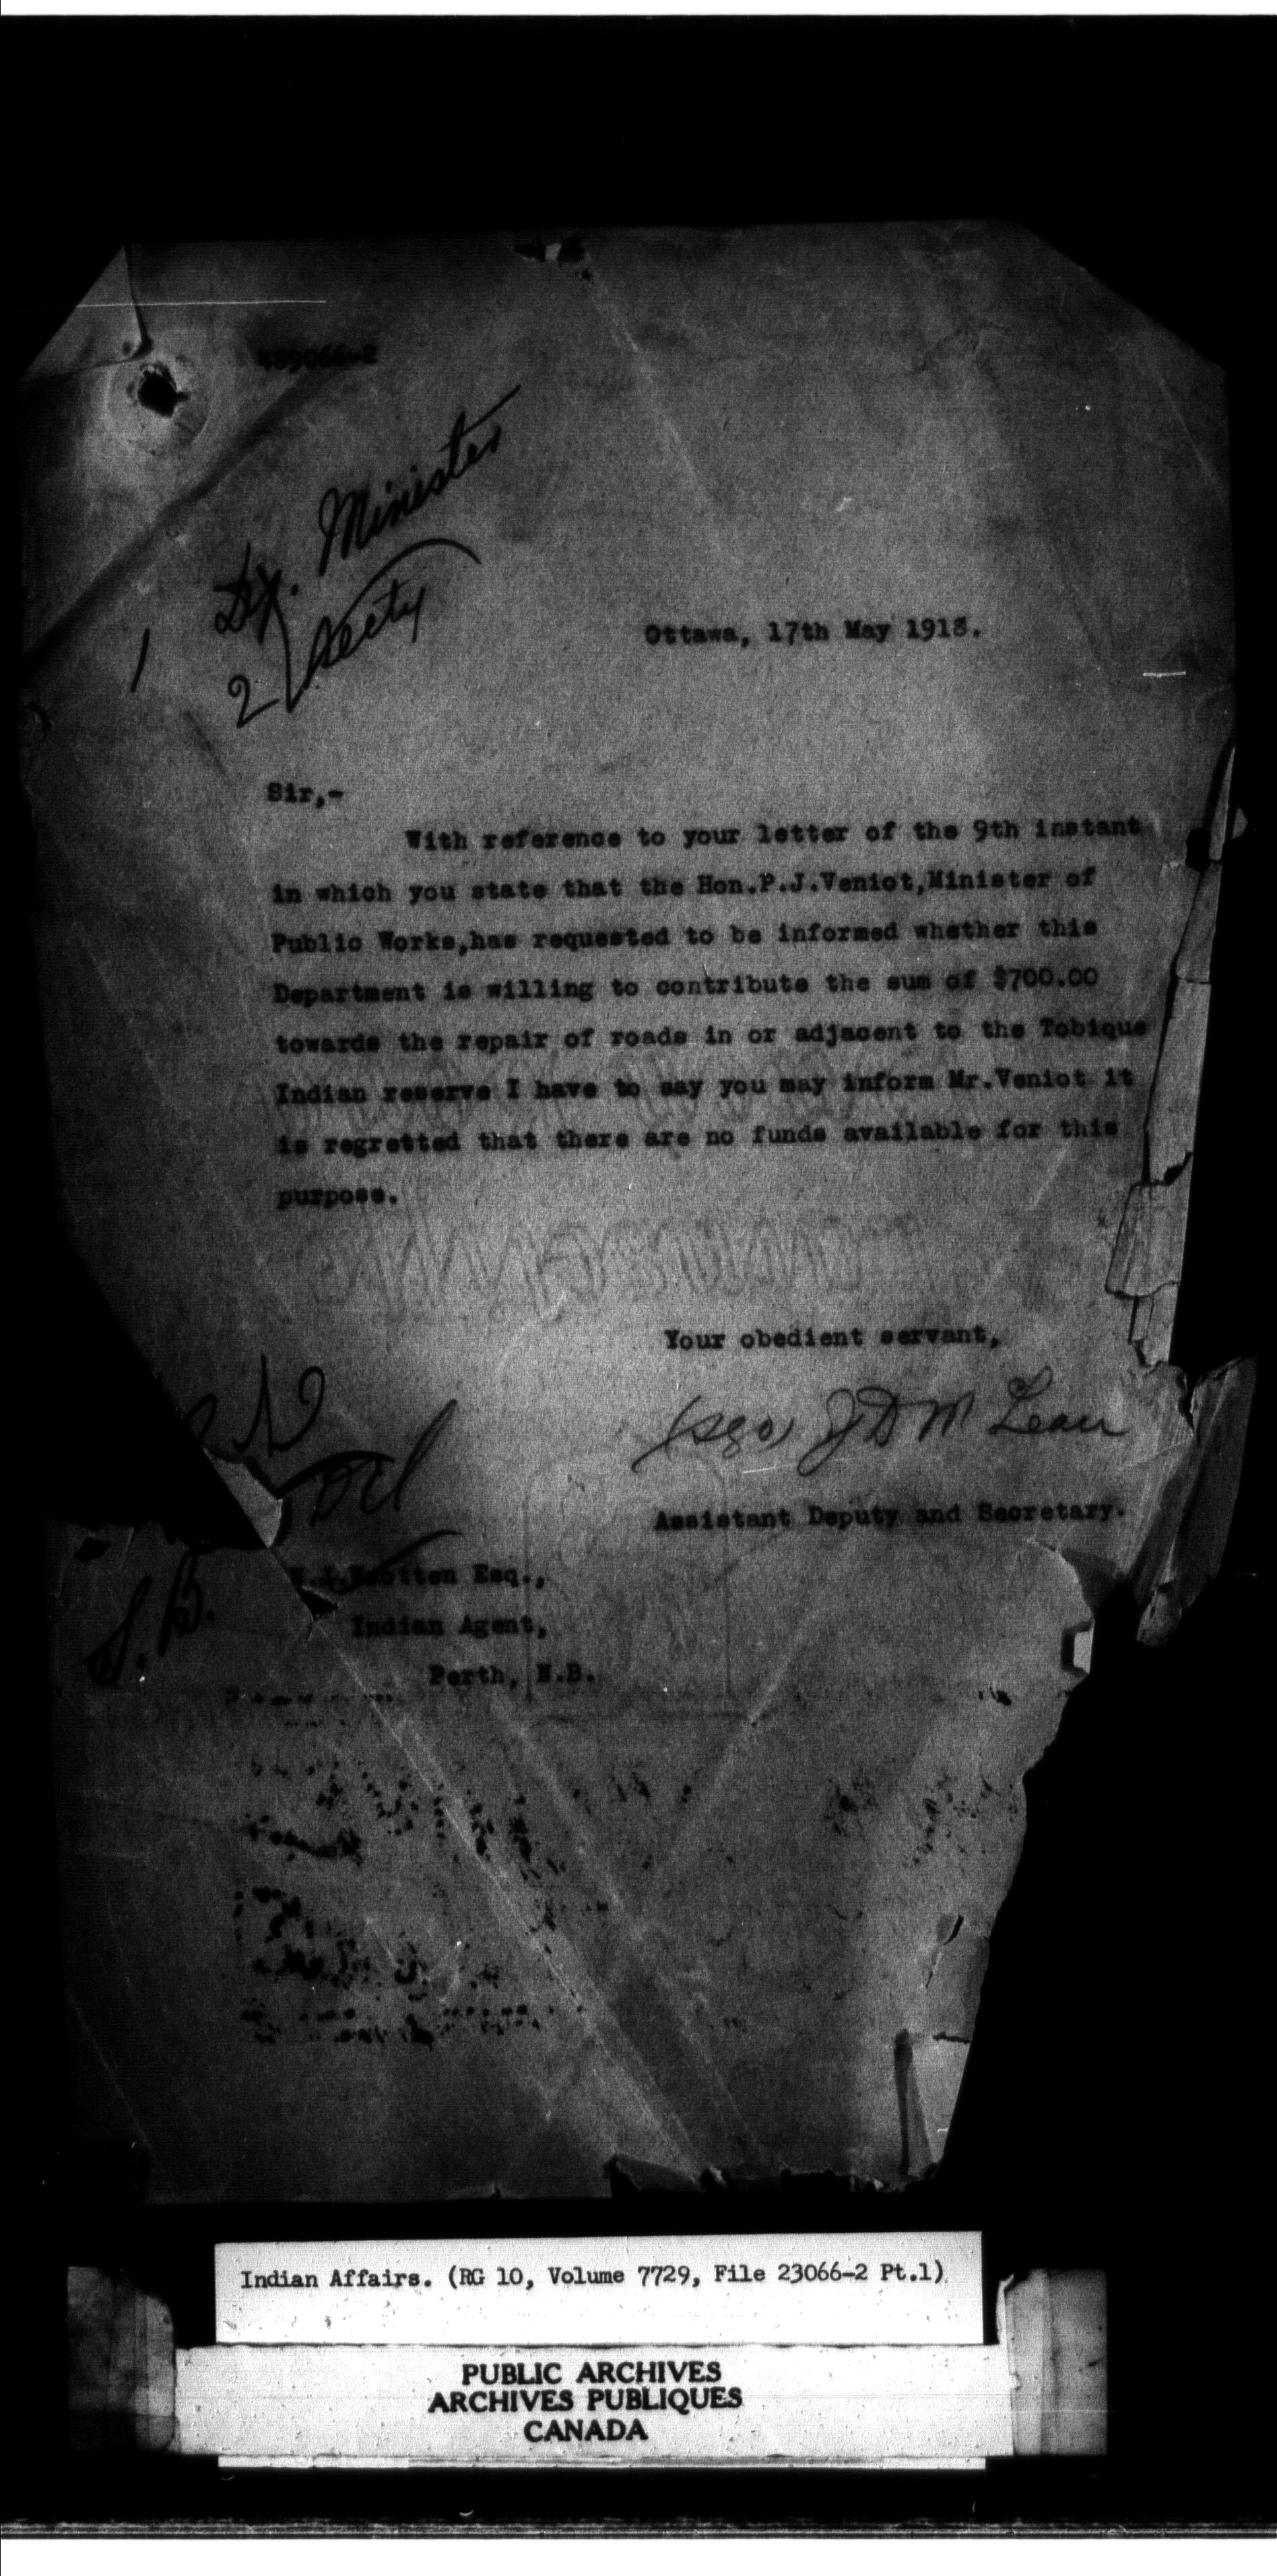 Dy. Minister
1
2 Secty
Ottawa, 17th May 1918.
Sir,-
With reference to your letter of the 9th instant
in which you state that the Hon.P.J.Veniot,Minister of
Public Works,has requested to be informed whether this
Department is willing to contribute the sum of $700.00
towards the repair of roads in or adjacent to the Tobique
Indian reserve I have to say you may inform Mr.Veniot it
is regretted that there are no funds available for this
purpose.
Your obedient servant,
(sgd) J D McLean
Assistant Deputy and Secretary.
Esq.,
Indian Agent,
S.B.
Perth, N.B.
Indian Affairs. (RG 10, Volume 7729, File 23066-2 Pt.1)
PUBLIC ARCHIVES
ARCHIVES PUBLIQUES
CANADA